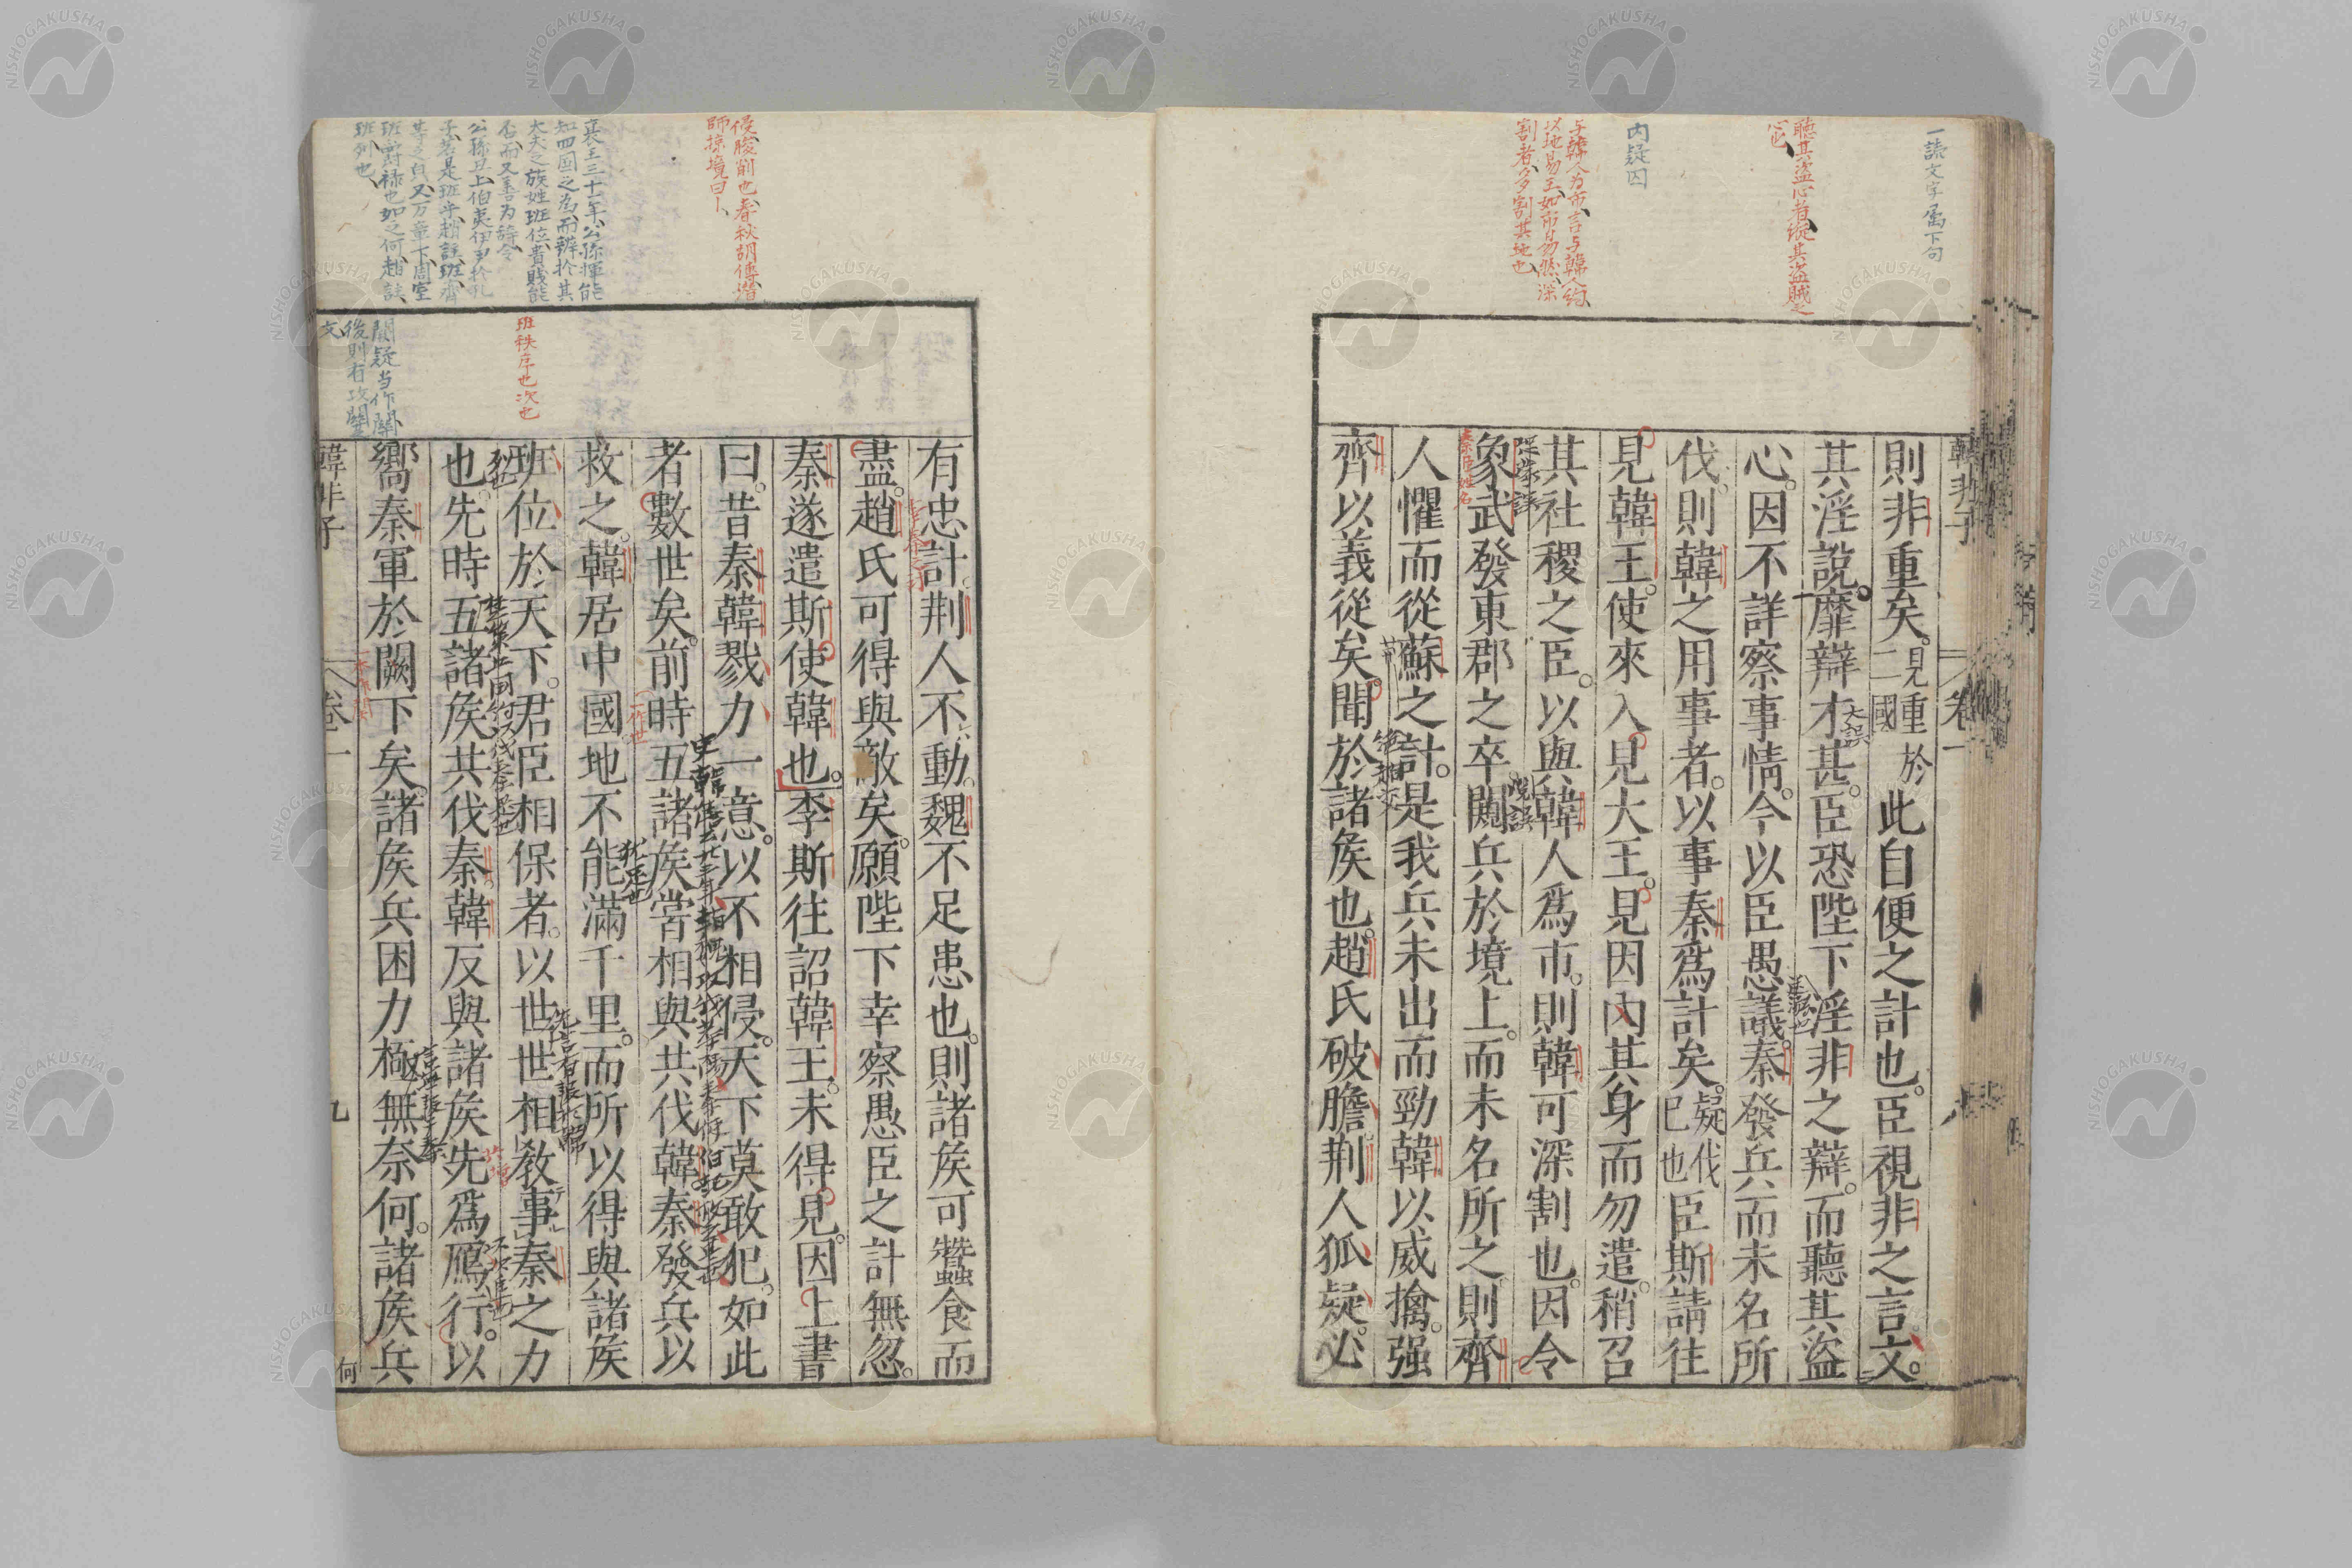 一読文字属下句
聽其盗心者從其盗賊之
心也
内疑因
与韓人為市言与韓人約
以地易王如市易然深
割者多割其地也
韓非子
卷一
則非重矣。見重於二國此自便之計也。臣視非之言文。
其淫說靡辯才甚。臣恐陛下淫非之辯。而聽其盜
心。因不詳察事情。今以臣愚議。秦發兵而未名所
伐。則韓之用事者。以事秦爲計矣。疑伐巳也臣斯請往
見韓王。使來入見大王。見因內其身而勿遣。稍召
其社稷之臣。以與韓人爲市。則韓可深割也。因令
象武發東郡之卒。闚兵於境上。而未名所之。則齊
人懼而從蘇之計。是我兵未出而勁韓以威擒。强
齊以義從矣。聞於諸矦也。趙氏破膽。荆人狐疑。必
侵朘削也春秋胡傳潛
師掠境曰
襄王三十一年公孫揮能
知四國之為而辨於其
大夫之族姓班位貴賤能
否而又善為辭令
公孫丑上伯夷伊尹於孔
子若是班乎趙註班齊
等之貌又万章下周室
班爵祿也如之何趙註
班列也
班秩序也次也
關疑当作闕
後則有攻關
文
有忠計。荆人不動。魏不足患也。則諸矦可蠶食而
盡。趙氏可得與敵矣。願陛下幸察愚臣之計無忽。
秦遂遣斯使韓也。李斯往詔韓王。未得見。因上書
曰。昔秦韓戮力一意。以不相侵。天下莫敢犯。如此
者數世矣。前時五諸矦嘗相與共伐韓。秦發兵以
救之。韓居中國。地不能滿千里。而所以得與諸矦
班位於天下。君臣相保者。以世世相敎事秦之力
也。先時五諸矦共伐秦。韓反與諸矦先爲鴈行。以
嚮秦軍於闕下矣。諸矦兵困力極。無奈何。諸矦兵
韓非子
卷一
九
何